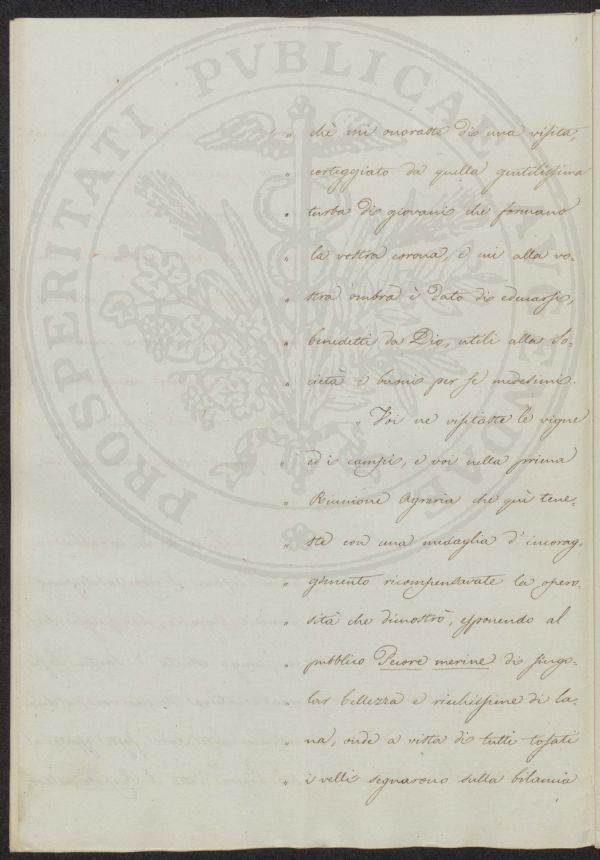 PROSPERITATI PVBLICAE AVGENDAE
" chè mi onoraste di una visita,
" corteggiato da quella gentilissima
" turba di giovani che formano
" la vostra corona, e cui alla vo-
" stra ombra è dato di educarsi,
" benedetti da Dio, utili alla So-
" cietà e buoni per se medesimi.
" Voi ne visitaste le vigne
" ed i campi, e voi nella prima
" Riunione Agraria che quì tene-
" ste con una medaglia d'incorag-
" gimento ricompensavate la opero-
" sità che dimostrò, esponendo al
" pubblico Pecore merine di singo-
" lar bellezza e ricchissime di la-
" na, onde a vista di tutti tosati
" i velli segnarono sulla bilancia